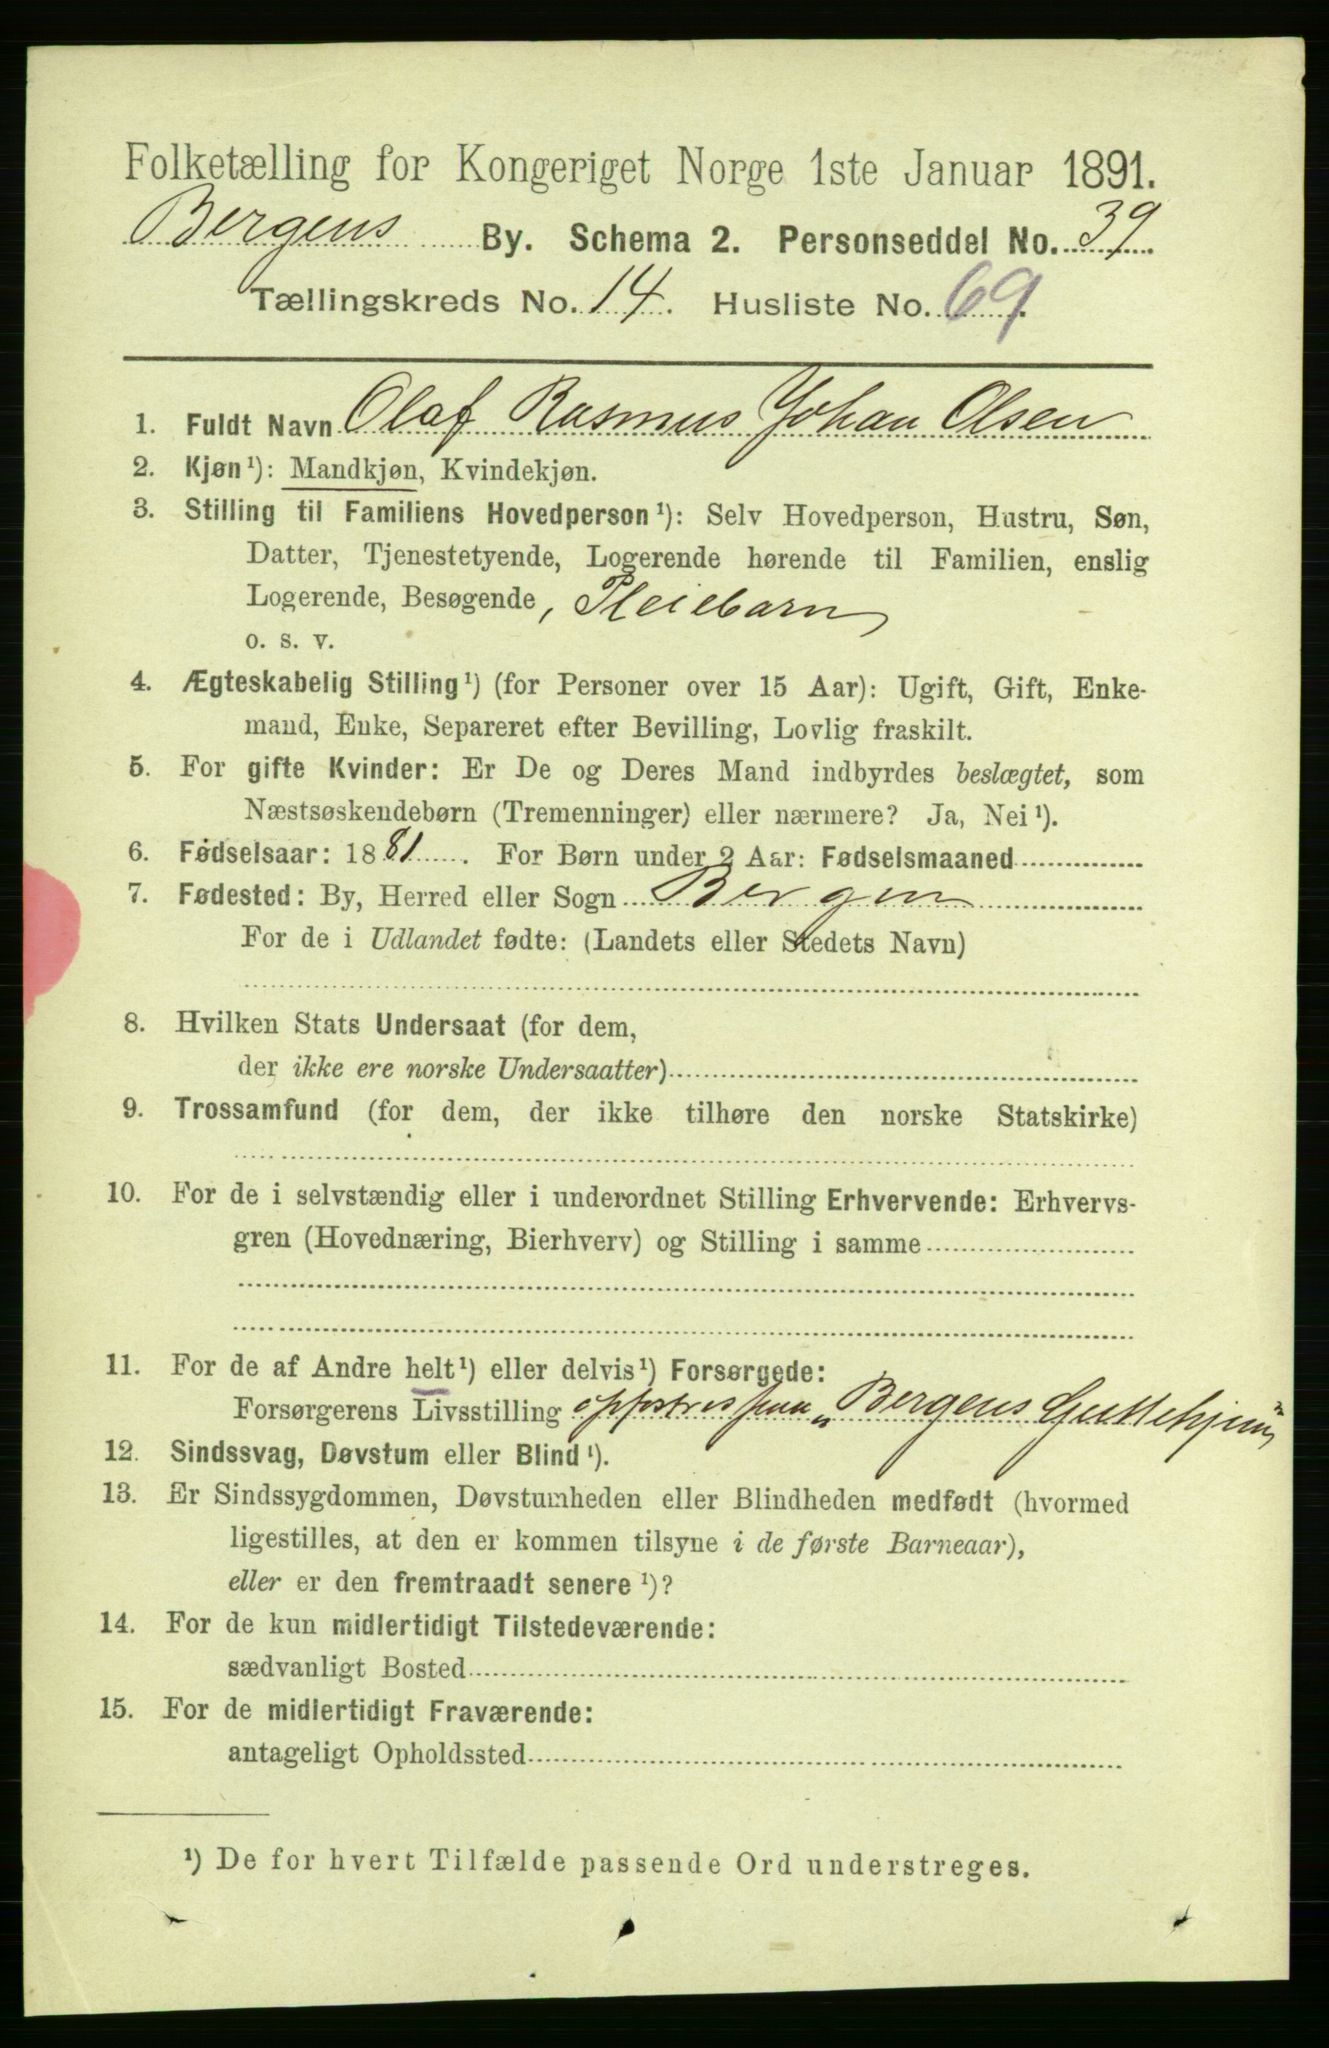 Folketælling for Kongeriget Norge 1ste Januar 1891.
Bergens By. Schema 2. Personseddel No. 39.
Tællingskreds No. 14. Husliste No. 69.
1. Fuldt Navn Olaf Rasmus Johan Olsen
2. Kjøn¹): Mandkjøn, Kvindekjøn.
3. Stilling til Familiens Hovedperson¹): Selv Hovedperson, Hustru, Søn,
Datter, Tjenestetyende, Logerende hørende til Familien, enslig
Logerende, Besøgende, Pleiebarn
o. s. v.
4. Ægteskabelig Stilling¹) (for Personer over 15 Aar): Ugift, Gift, Enke-
mand, Enke, Separeret efter Bevilling, Lovlig fraskilt.
5. For gifte Kvinder: Er De og Deres Mand indbyrdes beslægtet, som
Næstsøskendebørn (Tremenninger) eller nærmere? Ja, Nei¹).
6. Fødselsaar: 1881. For Børn under 2 Aar: Fødselsmaaned
7. Fødested: By, Herred eller Sogn Bergen
For de i Udlandet fødte: (Landets eller Stedets Navn)
8. Hvilken Stats Undersaat (for dem,
der ikke ere norske Undersaatter)
9. Trossamfund (for dem, der ikke tilhøre den norske Statskirke)
10. For de i selvstændig eller i underordnet Stilling Erhvervende: Erhvervs-
gren (Hovednæring, Bierhverv) og Stilling i samme
11. For de af Andre helt¹) eller delvis¹) Forsørgede:
Forsørgerens Livsstilling „Bergens Guttehjem"
12. Sindssvag, Døvstum eller Blind¹).
13. Er Sindssygdommen, Døvstumheden eller Blindheden medfødt (hvormed
ligestilles, at den er kommen tilsyne i de første Barneaar),
eller er den fremtraadt senere¹)?
14. For de kun midlertidigt Tilstedeværende:
sædvanligt Bosted
15. For de midlertidigt Fraværende:
antageligt Opholdssted
¹) De for hvert Tilfælde passende Ord understreges.